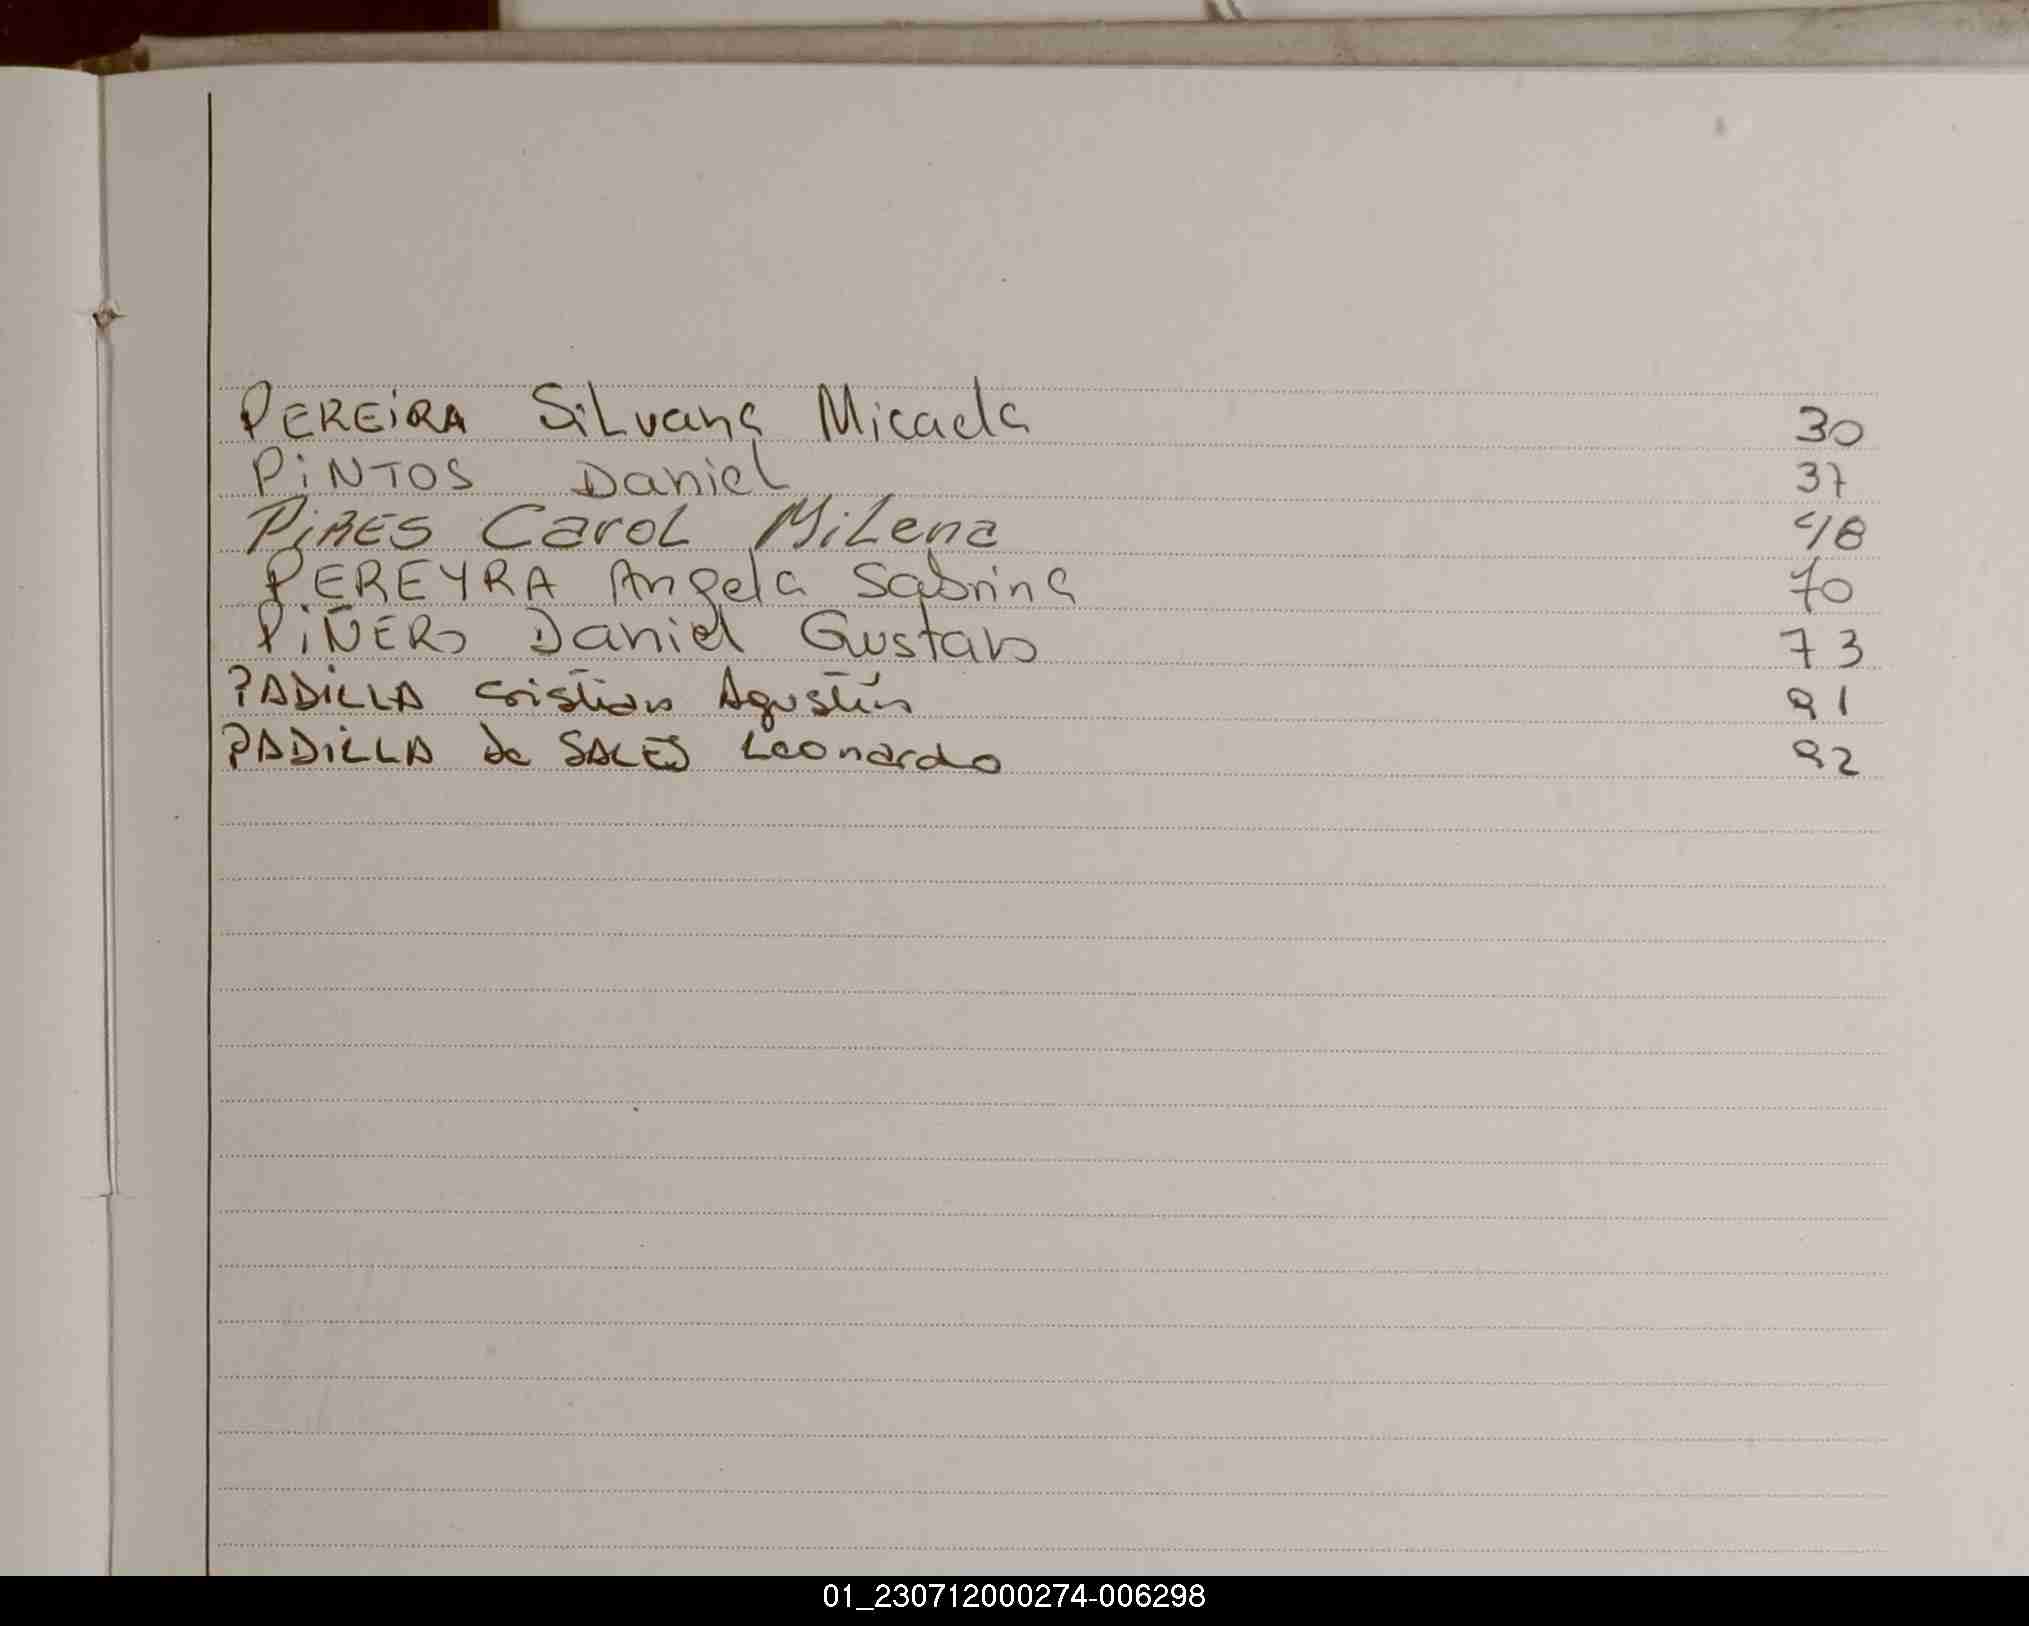 PEREIRA Silvana Micaela 30
PINTOS Daniel 37
PIRES Carol Milena 48
PEREYRA Angela Sabrina 70
PIÑERO Daniel Gustavo 73
PADILLA Cristian Agustín 91
PADILLA de SALES Leonardo 92
01_230712000274-006298